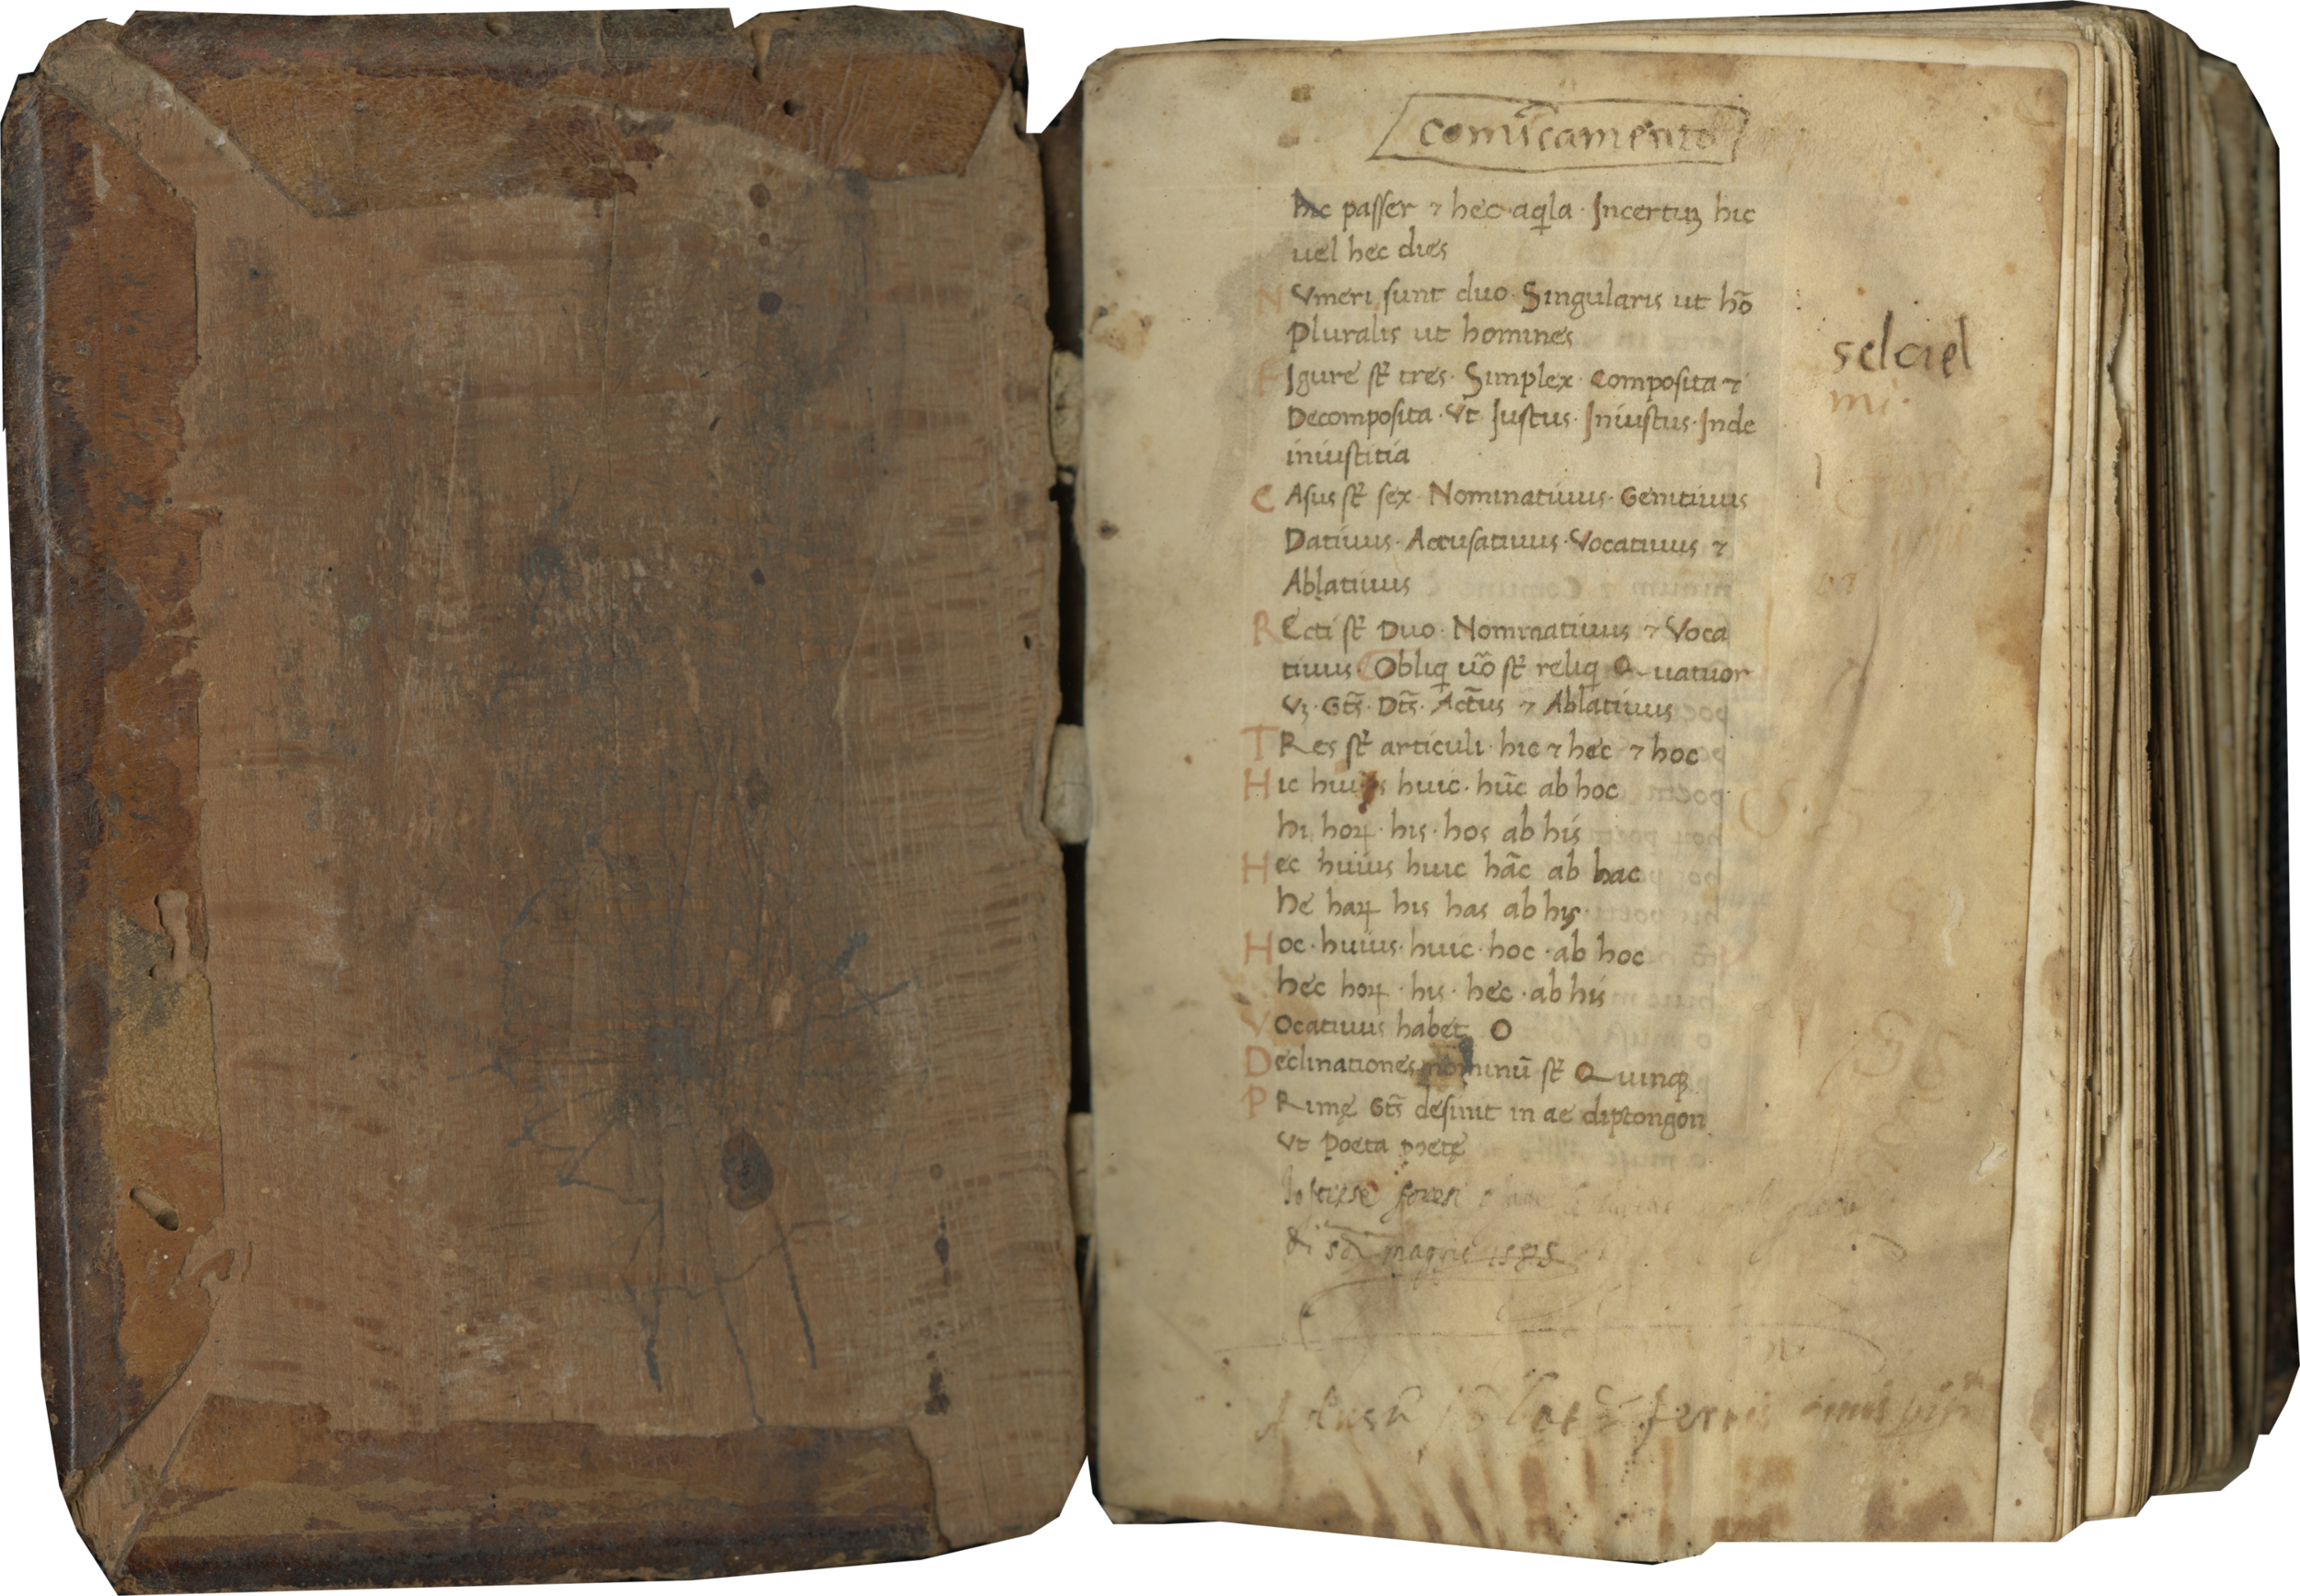 comu͂camento
hic passer ⁊ hec aqͥla · Incertuꝫ hic
uel hec dies
NVmeri sunt duo · Singularis ut hō
Pluralis ut homines
FIgure st̄ tres · Simplex · Composita ⁊
Decomposita · Vt Iustus · Iniustus · Inde
iniustitia
CAsus st̄ sex · Nominatiuus · Genitiuus
Datiuus · Accusatiuus · Vocatiuus ⁊
Ablatiuus
REcti st̄ Duo · Nominatiuus ⁊ Voca
tiuus Obliqͥ ūo st̄ reliqͥ Quatuor
Vꝫ · Gts̄ · Dts̄ · Actūs ⁊ Ablatiuus
TRes st̄ articuli · hic ⁊ hec ⁊ hoc
Hic huius huic · hūc ab hoc
hi hoꝝ · his · hos ab his
Hec huius huic hāc ab hac
he haꝝ his has ab his ·
Hoc · huius · huic · hoc · ab hoc
hec hoꝝ · his · hec · ab his
Vocatiuus habet O
Declinationes nominū st̄ Quinqꝫ
PRimę Gts̄ desinit in ae diptongon
Vt Poeta poetę
selciel
mi